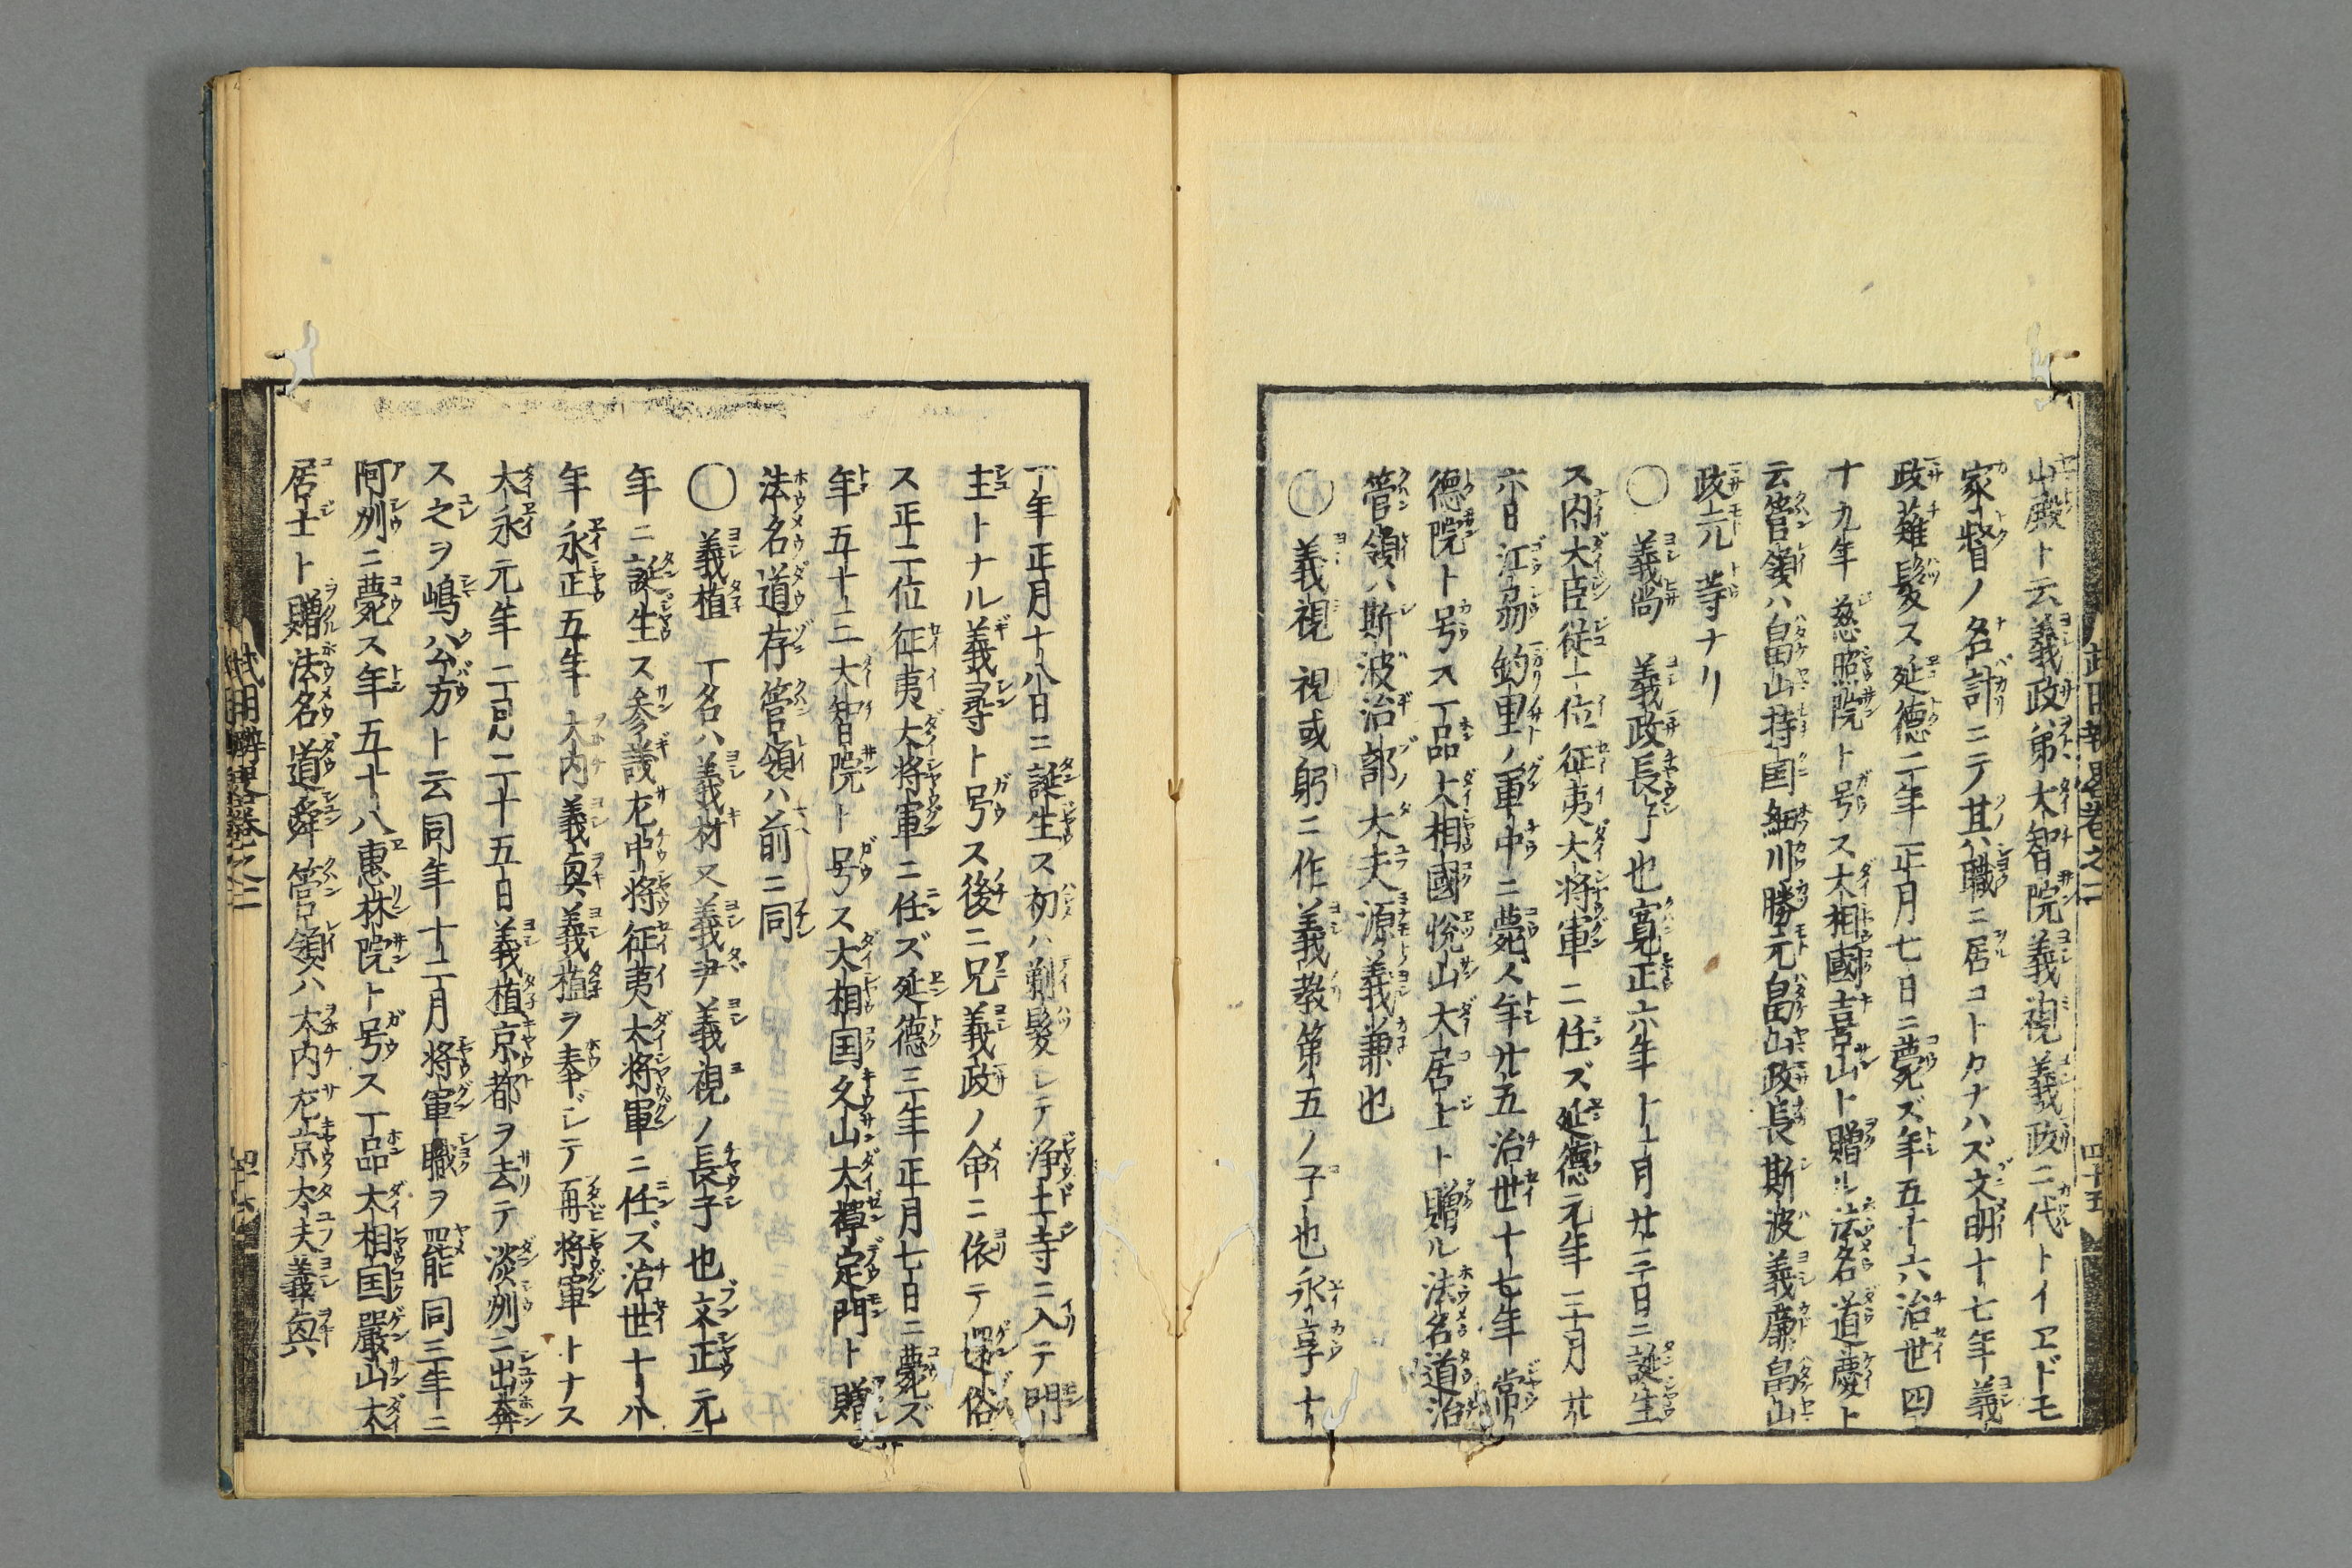 山殿ト云義政ハ弟大智院義視義政ニ代トイヱドモ
家督ノ名計ニテ其職ニ居コトカナハズ文明十七年義
政薙髪ス延徳二年正月七日ニ薨ズ年五十六治世四
十九年慈照院ト号ス大相國喜山ト贈ル法名道慶ト
云管領ハ畠山持国細川勝元畠山政長斯波義廉畠山
政元等ナリ
〇義尚 義政長子也寛正六年十一月廿三日ニ誕生
ス内大臣従一位征夷大将軍ニ任ズ延徳元年三月廿
六日江刕釣里ノ軍中ニ薨ス年廿五治世十七年常
徳院ト号ス一品大相國悦山大居士ト贈ル法名道治
管領ハ斯波治部大夫源義兼也
〇義視 視或躬ニ作義教第五ノ子也永享十
一年正月十八日ニ誕生ス初ハ剃髪シテ浄土寺ニ入テ門
主トナル義尋ト号ス後ニ兄義政ノ命ニ依テ還俗
ス正二位征夷大将軍ニ任ズ延徳三年正月七日ニ薨ズ
年五十三大智院ト号ス大相国久山大禅定門ト贈
法名道存管領ハ前ニ同
〇義植 一名ハ義材又義尹義視ノ長子也文正元
年ニ誕生ス参議左中将征夷大将軍ニ任ズ治世十八
年永正五年大内義奥義植ヲ奉ジテ再将軍トナス
大永元年二月二十五日義植京都ヲ去テ淡州ニ出奔
ス之ヲ嶋公方ト云同年十二月将軍職ヲ罷同三年ニ
阿州ニ薨ス年五十八惠林院ト号ス一品大相国嚴山大
居士ト贈法名道舜管領ハ大内左京大夫義奥